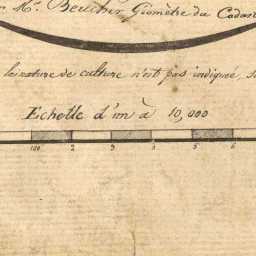 Mr. Beucher Géomètre du Cadast
la nature de culture n'est pas indiquée, s
Echelle d'un à 10,000
100 2 3 4 5 6